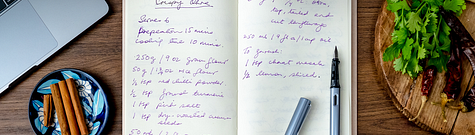 Crispy Okra
Serves 6
Preparation 15 mins
Cooking time 10 mins
250g / 9 oz gram flour
50g / 1¾ oz rice flour
½ tsp red chilli powder
½ tsp ground turmeric
1 tsp pink salt
1 tsp dry-roasted cumin
seeds
50
top tailed and
cut lengthways
250 ml / 9 fl oz / 1 cup oil
To garnish
1 tsp chaat masala
½ lemon, sliced.